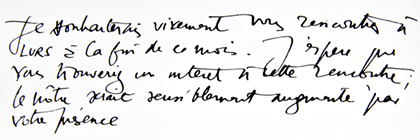 Je souhaiterais vivement vous rencontrer à
LURS à la fin de ce mois. J'espère que
vous trouverez un intérêt à cette rencontre;
le nôtre serait sensiblement augmenté par
votre présence